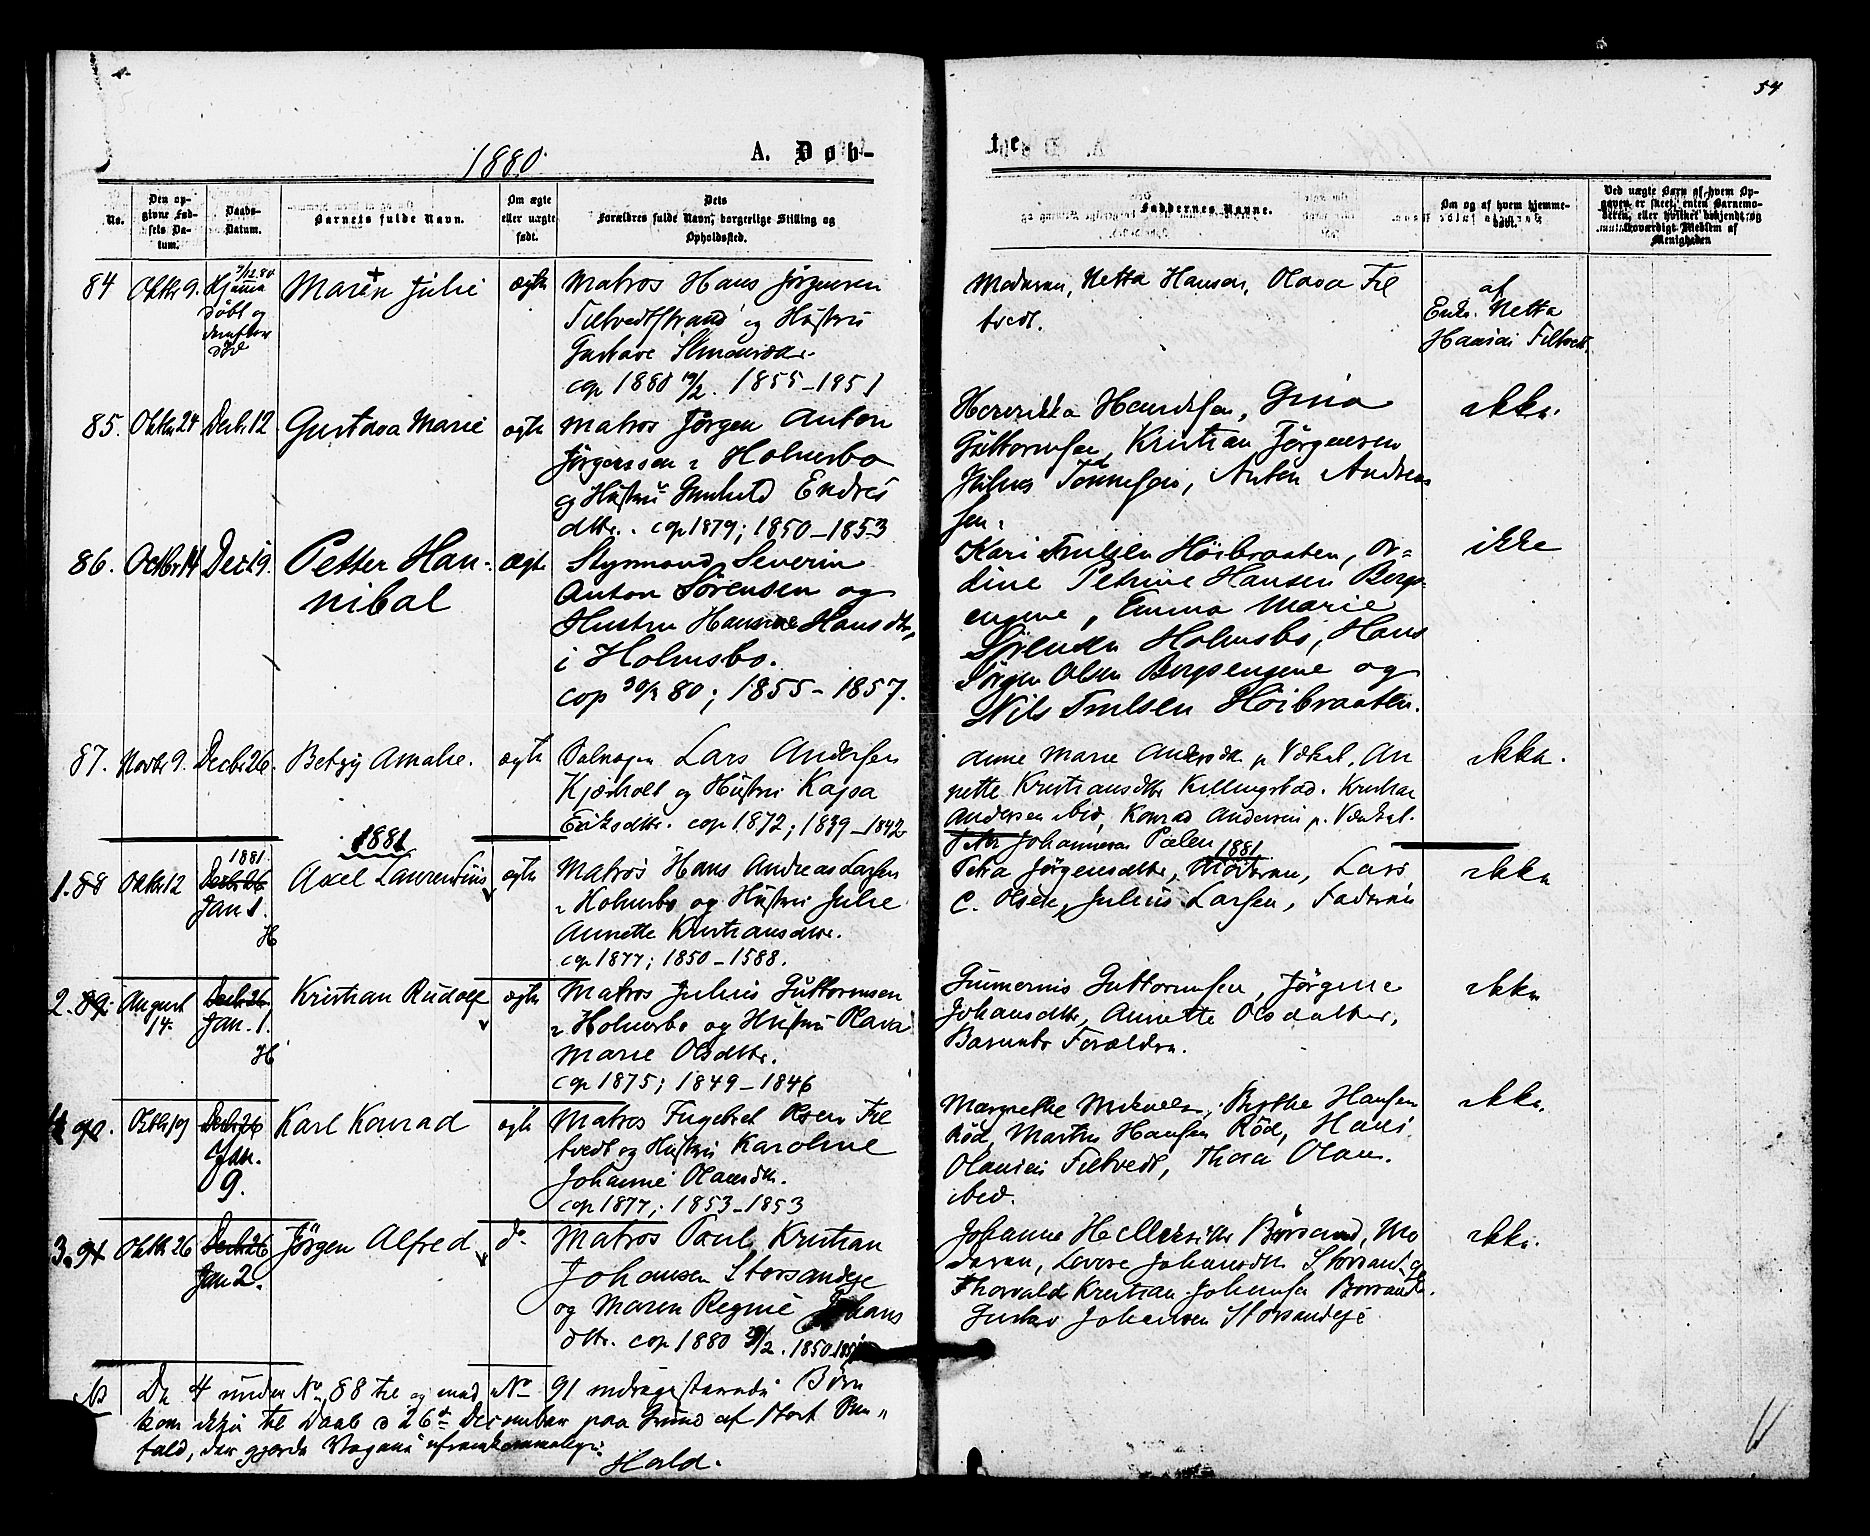 54
1880.
A. Døb-
te.
No.
Den op-
givne Fød-
sels Da-
tum.
Daabs-
Datum.
Barnets fulde Navn.
Om ægte
eller uægte
født.
Dets
Forældres fulde Navn, borgerlige Stilling og
Opholdssted.
Faddernes Navne.
Om og af hvem hjemme-
døbt.
Ved uægte Barn af hvem Op-
gaven er skeet, enten Barnemo-
deren, eller hvilket bekjendt og
troværdigt Medlem af
Menigheden
84
Oktbr 9.
7/12 80
Hjemme
døbt og
derefter
død
+
Maren Julie
ægte
Matros Hans Jørgensen
Filtvedtstrand og Hustru
Gustave Simonsdtr.
cop 1880 10/2. 1855-1851
Moderen, Netta Hansen, Olava Fil
tvedt.
af
Enke. Netta
Hansen Filtvedt.
85.
Oktbr 24
Decbr. 12
Gustava Marie
ægte
Matros Jørgen Anton
Jørgenssen i Holmsbo
og Hustru Gunhild Endres
dtr. cop 1879; 1850-1853
Henrikka Hendrsen, Gina
Guttormsen, Kristian Jørgensen
Julius Tønnesen, Anton Andreas
sen.
ikke.
86.
Octbr 14
Dec 19.
Petter Han-
nibal
ægte
Styrmand Severin
Anton Sørensen og
Hustru Hanne Hansdtr,
i Holmsbo.
cop 30/1 80; 1855-1857.
Kari Trulsen Høibraaten, Or=
dine Petrine Hansen Bergs
engene, Emma Marie
Sørensen Holmsbo, Hans
Jørgen Olsen Bergsengene og
Nils Trulsen Høibraaten.
ikke
87.
Novbr 9.
Decbr 26.
Betzy Amalie.
ægte
Lars Andersen
Kjærholt og Hustru Kajsa
Eriksdtr. cop 1872; 1839-1842
Anne Marie Andersdtr p. Vækel, An
nette Kristiansdtr Killingstad. Kristian
Andersen ibid, Konrad Andersen p. Vækel.
Peter Johannesen Pælen
ikke.
1881
1881
1. 88
Oktbr 12
1881.
Decbr 26
Jan 1.
H
Axel Laurentius
ægte
Matros Hans Andreas Larsen
i Holmsbo og Hustru Julie
Annette Kristiansdtr.
cop 1877; 1850-1588.
Petra Jørgensdtr, Moderen, Lars
C. Olsen, Julius Larsen, Faderen
ikke
2. 89.
August
14.
Decbr 26.
Jan. 1.
H
Kristian Rudolf
ægte
Matros Julius Guttormsen
i Holmsbo og Hustru Olava
Marie Olsdtr.
cop 1875; 1849-1846
Guttormsen, Jørgine
Johansdtr, Annette Olsdatter,
Barnets Forældre.
ikke
4 90.
Oktbr 19
Decbr 26
Jan.
9.
Karl Konrad
ægte
Matros Engebret Olsen Fil
tvedt og Hustru Karoline
Johanne Olausdtr.
cop 1877; 1853-1853
Margrethe Mikkelsen, Berthe Hansen
Rød, Martin Hansen Rød, Hans
Olausen Filtvedt, Thora Olau.
ibid.
ikke.
3. 91
Oktbr 26
Decbr 26
Jan 2.
Jørgen Alfred
do
Matros Paul Kristian
Johansen Storsandeje
og Maren Regine Johans
dtr. cop 1880 /2. 1850-185
Johanne Børsand, Mo
deren, Lovise Johansdtr Storsand, og
Thorvald Kristian Johansen Børsand.
Gustav Johansen Storsandeje
ikke.
NB De 4 under No 88 til og med No 91 indtegnede Børn
kom ikke til Daab d 26de December paa Grund af stort Sne=
fald, der gjorde Vegene ufremkommelige.
Hald.